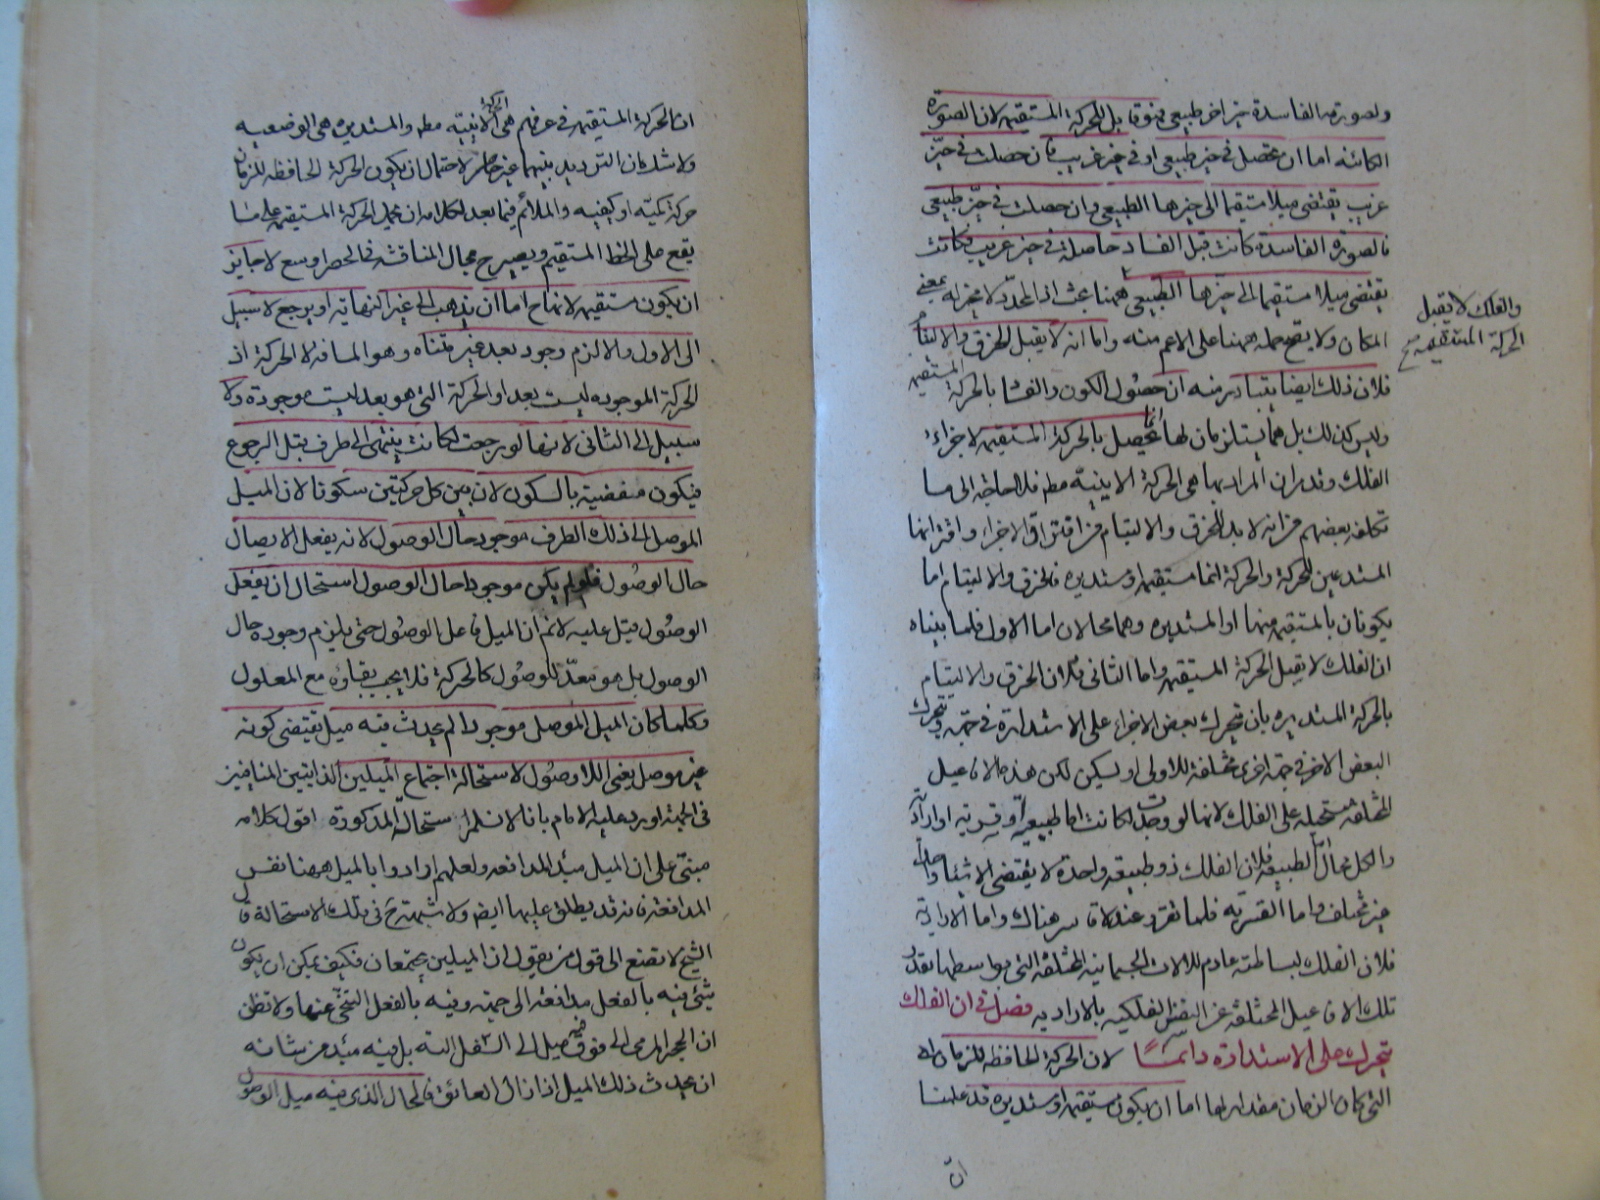 ولصورته الفاسدة حيز اخر طبيعي فهو قابل للحركة المستقيمة لان الصورة
الكائنة اما ان تحصل في حيز طبيعي او في حيز غريب فان حصلت في حيز
غريب يقتضي ميلا مستقيما الى حيزها الطبيعي وان حصلت في حيز طبيعي
فالصورة الفاسدة كانت قبل الفساد حاصلة في حيز غريب فكانت
يقتضي ميلا مستقيما الى حيزها الطبيعي ههنا بحث اذ المحدد لا حيز له بمعنى
المكان ولا يصح حمله ههنا على الاعم منه واما انه لا يقبل الخرق والالتيام
والفلك لا يقبل
الحركة المستقيمة صح
فلان ذلك ايضا يتبادر منه ان حصول الكون والفساد بالحركة المستقيمة
وليس كذلك بل هما يستلزمان لها انما يحصل بالحركة المستقيمة لاجزاء
الفلك وقد مر ان المراد بها هي الحركة الاينية مطلقا فلا حاجة الى ما
تكلفه بعضهم من انه لا بد للخرق والالتيام من افتراق الاجزاء واقترانها
المستدعيين للحركة والحركة اما مستقيمة او مستديرة فالخرق والالتيام اما
يكونان بالمستقيمة منها او المستديرة وهما محالان اما الاول فلما بيناه
ان الفلك لا يقبل الحركة المستقيمة واما الثاني فلان الخرق والالتيام
بالحركة المستديرة بان يتحرك بعض الاجزاء على الاستدارة في جهة ويتحرك
البعض الاخر في جهة اخرى مخالفة للاولى او يسكن لكن هذه الافاعيل
المختلفة مستحيلة على الفلك لانها لو وجدت لكانت اما طبيعية او قسرية او ارادية
والكل محال اما الطبيعية فلان الفلك ذو طبيعة واحدة لا يقتضي الا شيئا واحدا
غير مختلف واما القسرية فلما تقرر عندهم لا قاسر هناك واما الارادية
فلان الفلك لبساطته عادم للالات الجسمانية المختلفة التي بواسطها تصدر
تلك الافاعيل المختلفة عن النفس الفلكية بالارادية فصل في ان الفلك
يتحرك على الاستدارة دائما لان الحركة الحافظة للزمان اي
التي كان الزمان مقدارا لها اما ان يكون مستقيمة او مستديرة قد علمنا
ان
ان الحركة المستقيمة في عرفهم هي الحركة الاينية مطلقا والمستديرة هي الوضعية
ولا شك ان الترديد بينهما غير حاصر لاحتمال ان يكون الحركة الحافظة للزمان
حركة كمية او كيفية والملائم فيما بعد لكلامه ان يحمل الحركة المستقيمة على ما
يقع على الخط المستقيم ويصير ح مجال المناقشة في الحصر اوسع لا جايز
ان يكون مستقيمة لانها ح اما ان يذهب الى غير النهاية او يرجع لا سبيل
الى الاول والا لزم وجود بعد غير متناه وهو المسافة لا الحركة اذ
الحركة الموجودة ليست بعدا والحركة التي هو بعد ليست موجودة ولا
سبيل الى الثاني لانها لو رجعت لكانت ينتهي الى طرف قبل الرجوع
فيكون منقضية بالسكون لان بين كل حركتين سكونا لان الميل
الموصل الى ذلك الطرف موجود حال الوصول لانه يفعل الايصال
حال الوصول فلو لم يكن موجودا حال الوصول استحال ان يفعل
الوصول قيل عليه لانم ان الميل فاعل الوصول حتى يلزم وجوده حال
الوصول بل هو معد للوصول كالحركة فلا يجب بقاؤه مع المعلول
وكلما كان الميل الموصل موجودا لم يحدث فيه ميل يقتضي كونه
غير موصل يعني اللاوصول لاستحالة اجتماع الميلين الذاتيين المتنافيين
في الجهة اورد عليه الامام بانا لا نسلم استحالة المذكورة اقول كلامه
مبني على ان الميل مبدء المدافعة ولعلهم ارادوا بالميل ههنا نفس
المدافعة فانه قد يطلق عليها ايضا ولا شبهة ح في تلك الاستحالة قال
الشيخ لا تصغ الى قول من يقول ان الميلين يجتمعان فكيف يمكن ان يكون
شيء فيه بالفعل مدافعة الى جهة وفيه بالفعل التنحي عنها ولا تظن
ان الحجر المرمى الى فوق فيه ميل الى السفل البتة بل فيه مبدء من شانه
ان يحدث ذلك الميل اذا زال العائق فالحال الذي فيه ميل الوصول